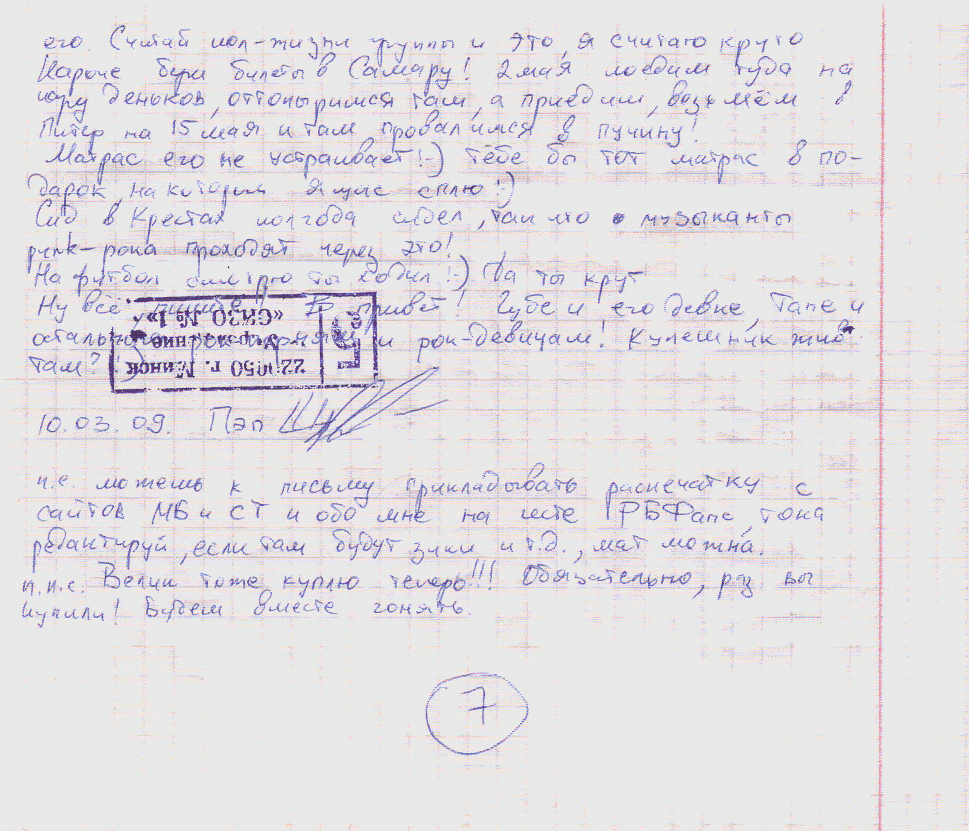 его. Считай пол-жизни группы и это, я считаю круто
Кароче бери билеты в Самару! 2 мая поедим туда на
пару деньков, оттопыримся там, а приедим, возьмём в
Питер на 15 мая и там провалимся в пучину!
Матрас его не устраивает!:-) тебе бы тот матрас в по-
дарок, на котором я щас сплю :)
Сид в Крестах полгода сидел, так что музыканты
punk-рока проходят через это!
На футбол смотрю ты ходил!:-) Да ты крут
Ну всё привет! Губе и его девке, Тапе и
и рок-девицам! Кулешник жив
там?
«СИЗО № 1»
22 050 г. Минск
10.03.09. Пэп
п.с. можешь к письму прикладывать распечатку с
сайтов МБ и СТ и обо мне на сайте РБФанс, тока
редактируй, если там будут зики и т.д., мат можна.
п.п.с. Велик тоже куплю теперь!!! Обязательно, рз вы
купили! Будем вместе гонять.
7